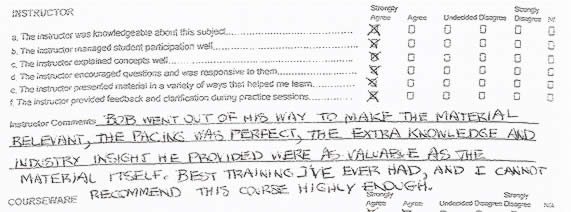 INSTRUCTOR
Strongly Agree Agree Undecided Disagree Strongly Disagree NA
a. The instructor was knowledgeable about this subject
b. The instructor managed student participation well
c. The instructor explained concepts well
d. The instructor encouraged questions and was responsive to them
e. The instructor presented material in a variety of ways that helped me learn
f. The instructor provided feedback and clarification during practice sessions
Instructor Comments BOB WENT OUT OF HIS WAY TO MAKE THE MATERIAL
RELEVANT, THE PACING WAS PERFECT, THE EXTRA KNOWLEDGE AND
INDUSTRY INSIGHT HE PROVIDED WERE AS VALUABLE AS THE
MATERIAL ITSELF. BEST TRAINING I'VE EVER HAD, AND I CANNOT
RECOMMEND THIS COURSE HIGHLY ENOUGH.
COURSEWARE
Strongly Agree Agree Undecided Disagree Strongly Disagree NA